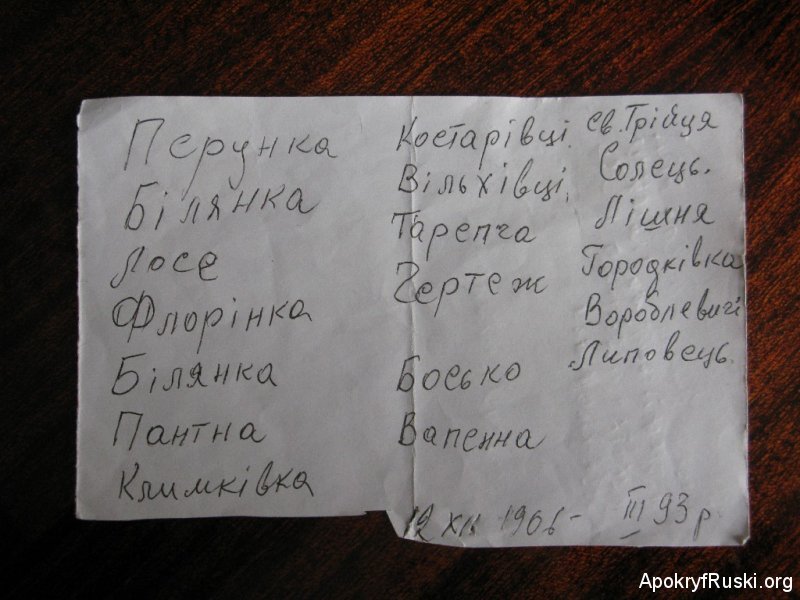 Перунка
Білянка
Лосе
Флорінка
Білянка
Пантна
Климківка
Костарівці
Вільхівці,
Тарепча
Чертеж
Босько
Вапенна
св. Трійця
Солець.
Лішня
Городківка
Вороблевичі
Липовець.
12 XII 1906 - III 93 р
ApokryfRuski.org